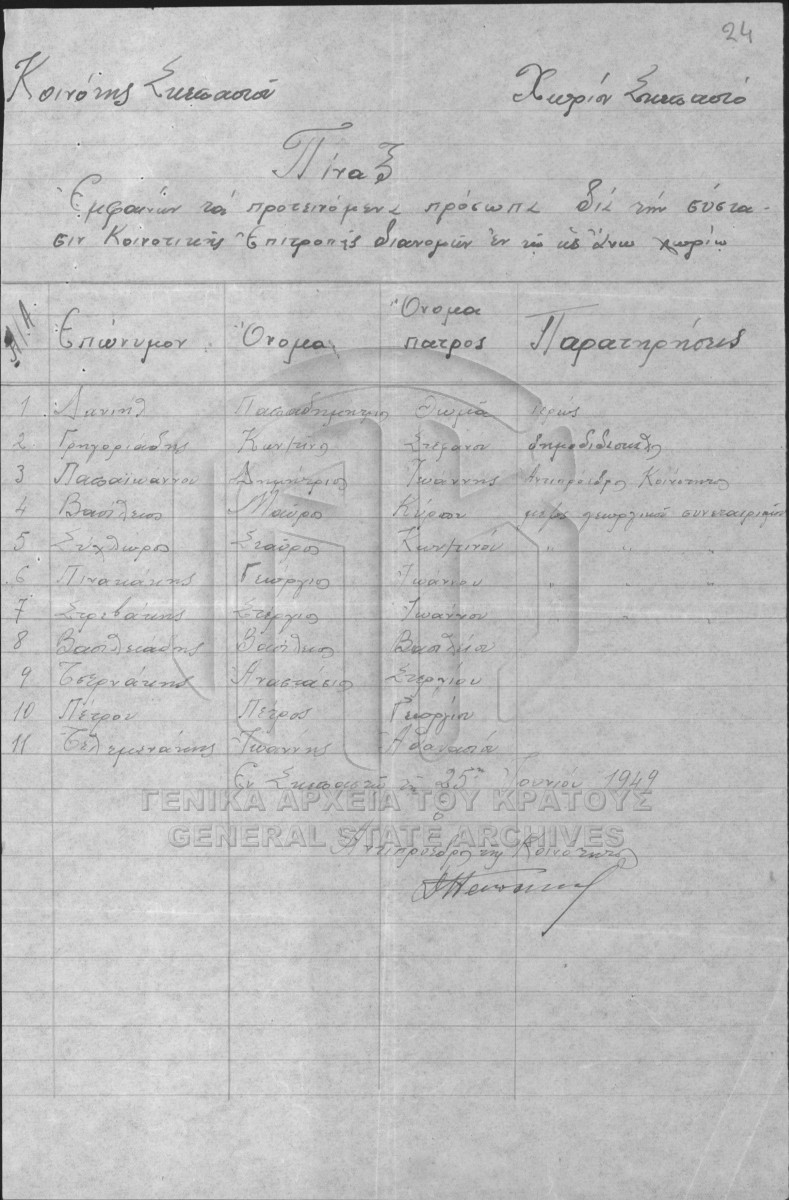 24
Κοινότης Σκεπαστού Χωρίον Σκεπαστό
Πίναξ
Ἐμφαινών τα προτεινόμενα πρόσωπα διά την σύστα-
σιν Κοινοτικής Ἐπιτροπής διανομών ἐν τω ἄνω χωρίω
Α/Α Ἐπώνυμον Ὄνομα Ὄνομα πατρος Παρατηρήσεις
1 Παπαδημήτριος Θωμά ιερεύς
2 Γρηγοριάδης Κων/τίνος Στεφάνου δημοδιδάσκαλος
3 Παπαϊωάννου Δημήτριος Ἰωάννης Αντιπρόεδρος Κοινότητος
4 Βασίλειος Μαύρος Κύρου μέλος γεωργικού συνεταιρισμού
5 Σταύρος Κων/τίνου " " "
6 Πινακάκης Γεώργιος Ἰωάννου " " "
7 Στρεβάκης Στέργιος Ἰωάννου " " "
8 Βασιλειάδης Βασίλειος Βασιλείου
9 Τσερνάκης Ἀναστάσιος Στεργίου
10 Πέτρου Πέτρος Γεωργίου
11 Ἰωάννης Ἀθανασίου
Εν Σκεπαστώ τη 25η Ἰουνίου 1949
ΓΕΝΙΚΑ ΑΡΧΕΙΑ ΤΟΥ ΚΡΑΤΟΥΣ
GENERAL STATE ARCHIVES
Ο
Αντιπρόεδρος της Κοινότητος